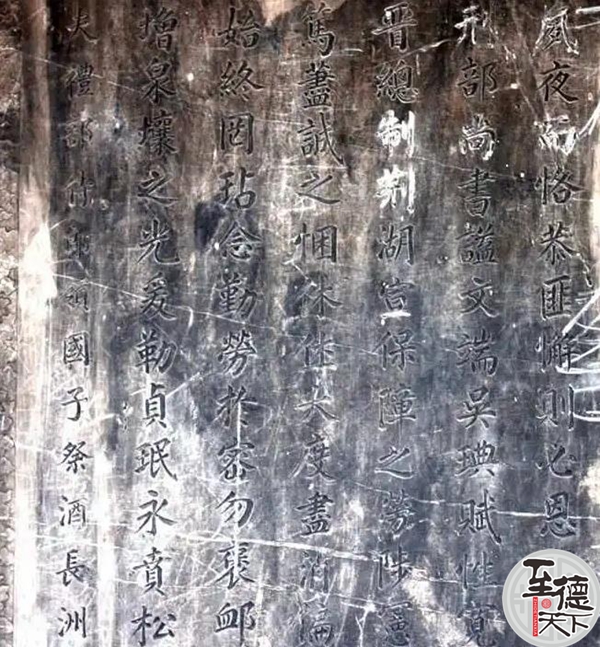 夙夜而恪恭匪懈則心恩
刑部尚書謚文端吳琠賦性寬
晉總制荊湖宣保障之勞陟憲
篤藎誠之悃休休大度盡消偏
始終罔玷念勤勞於密勿褒卹
增泉壤之光爰勒貞珉永賁松
夫禮部侍郎領國子祭酒長洲
至德天下